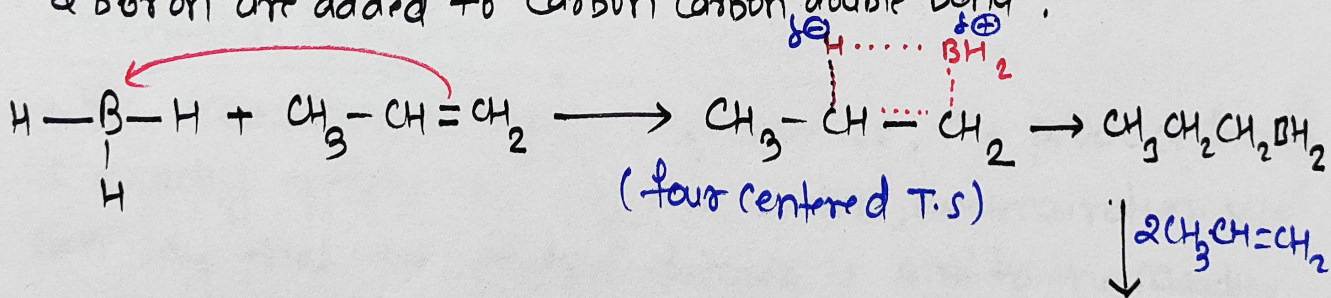 & boron are added to carbon carbon double bond.
δ⊖ δ⊕
H ..... BH₂
H—B—H + CH₃-CH=CH₂ ⟶ CH₃-CH—CH₂ → CH₃CH₂CH₂BH₂
H
(four centered T.S)
↓ 2CH₃CH=CH₂